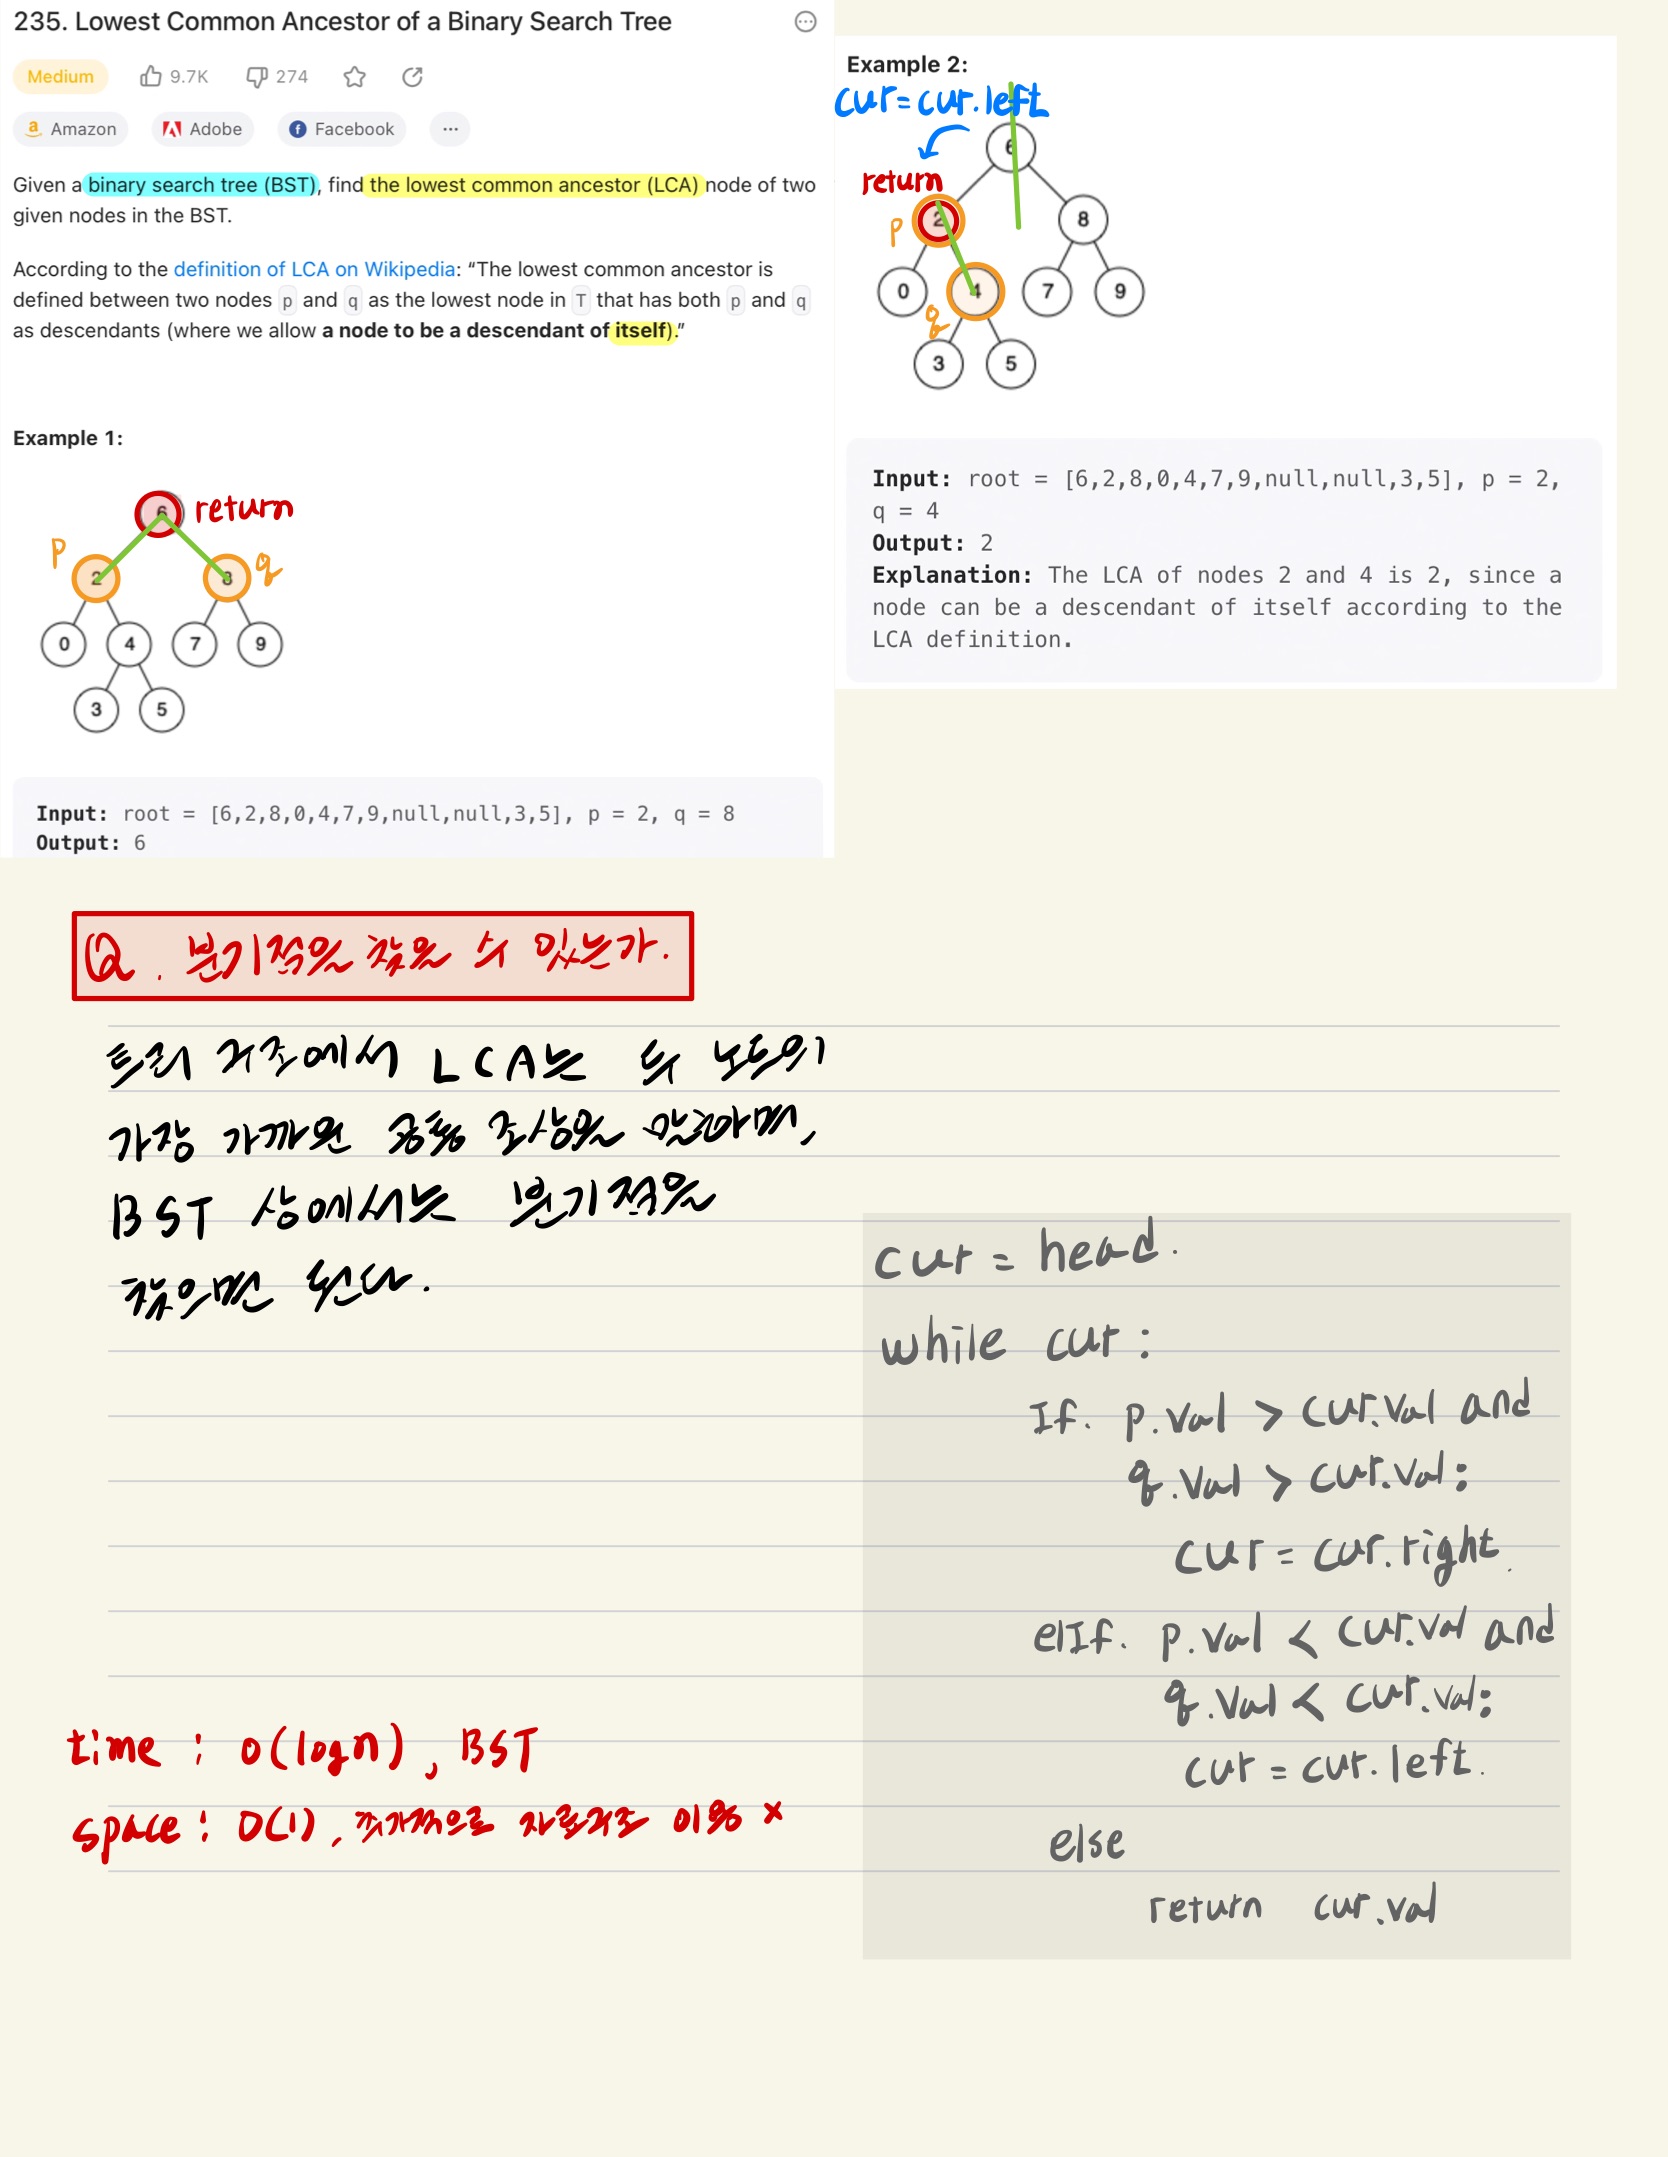 235. Lowest Common Ancestor of a Binary Search Tree
Medium 9.7K 274
Amazon Adobe Facebook ...
Given a binary search tree (BST), find the lowest common ancestor (LCA) node of two
given nodes in the BST.
According to the definition of LCA on Wikipedia: “The lowest common ancestor is
defined between two nodes p and q as the lowest node in T that has both p and q
as descendants (where we allow a node to be a descendant of itself).”
Example 1:
6 return
p
2 8 q
0 4 7 9
3 5
Input: root = [6,2,8,0,4,7,9,null,null,3,5], p = 2, q = 8
Output: 6
Example 2:
cur=cur.left
6
return
p 2 8
0 4 7 9
q
3 5
Input: root = [6,2,8,0,4,7,9,null,null,3,5], p = 2,
q = 4
Output: 2
Explanation: The LCA of nodes 2 and 4 is 2, since a
node can be a descendant of itself according to the
LCA definition.
Q. 분기점을 찾을 수 있는가.
트리 구조에서 LCA는 두 노드의
가장 가까운 공통 조상을 말하며,
BST 상에서는 분기점을
찾으면 된다.
time : O(logn), BST
space : O(1), 추가적으로 자료구조 이용 x
cur = head.
while cur :
If. p.val > cur.val and
q.val > cur.val:
cur = cur.right.
elIf. p.val < cur.val and
q.val < cur.val:
cur = cur.left.
else
return cur.val